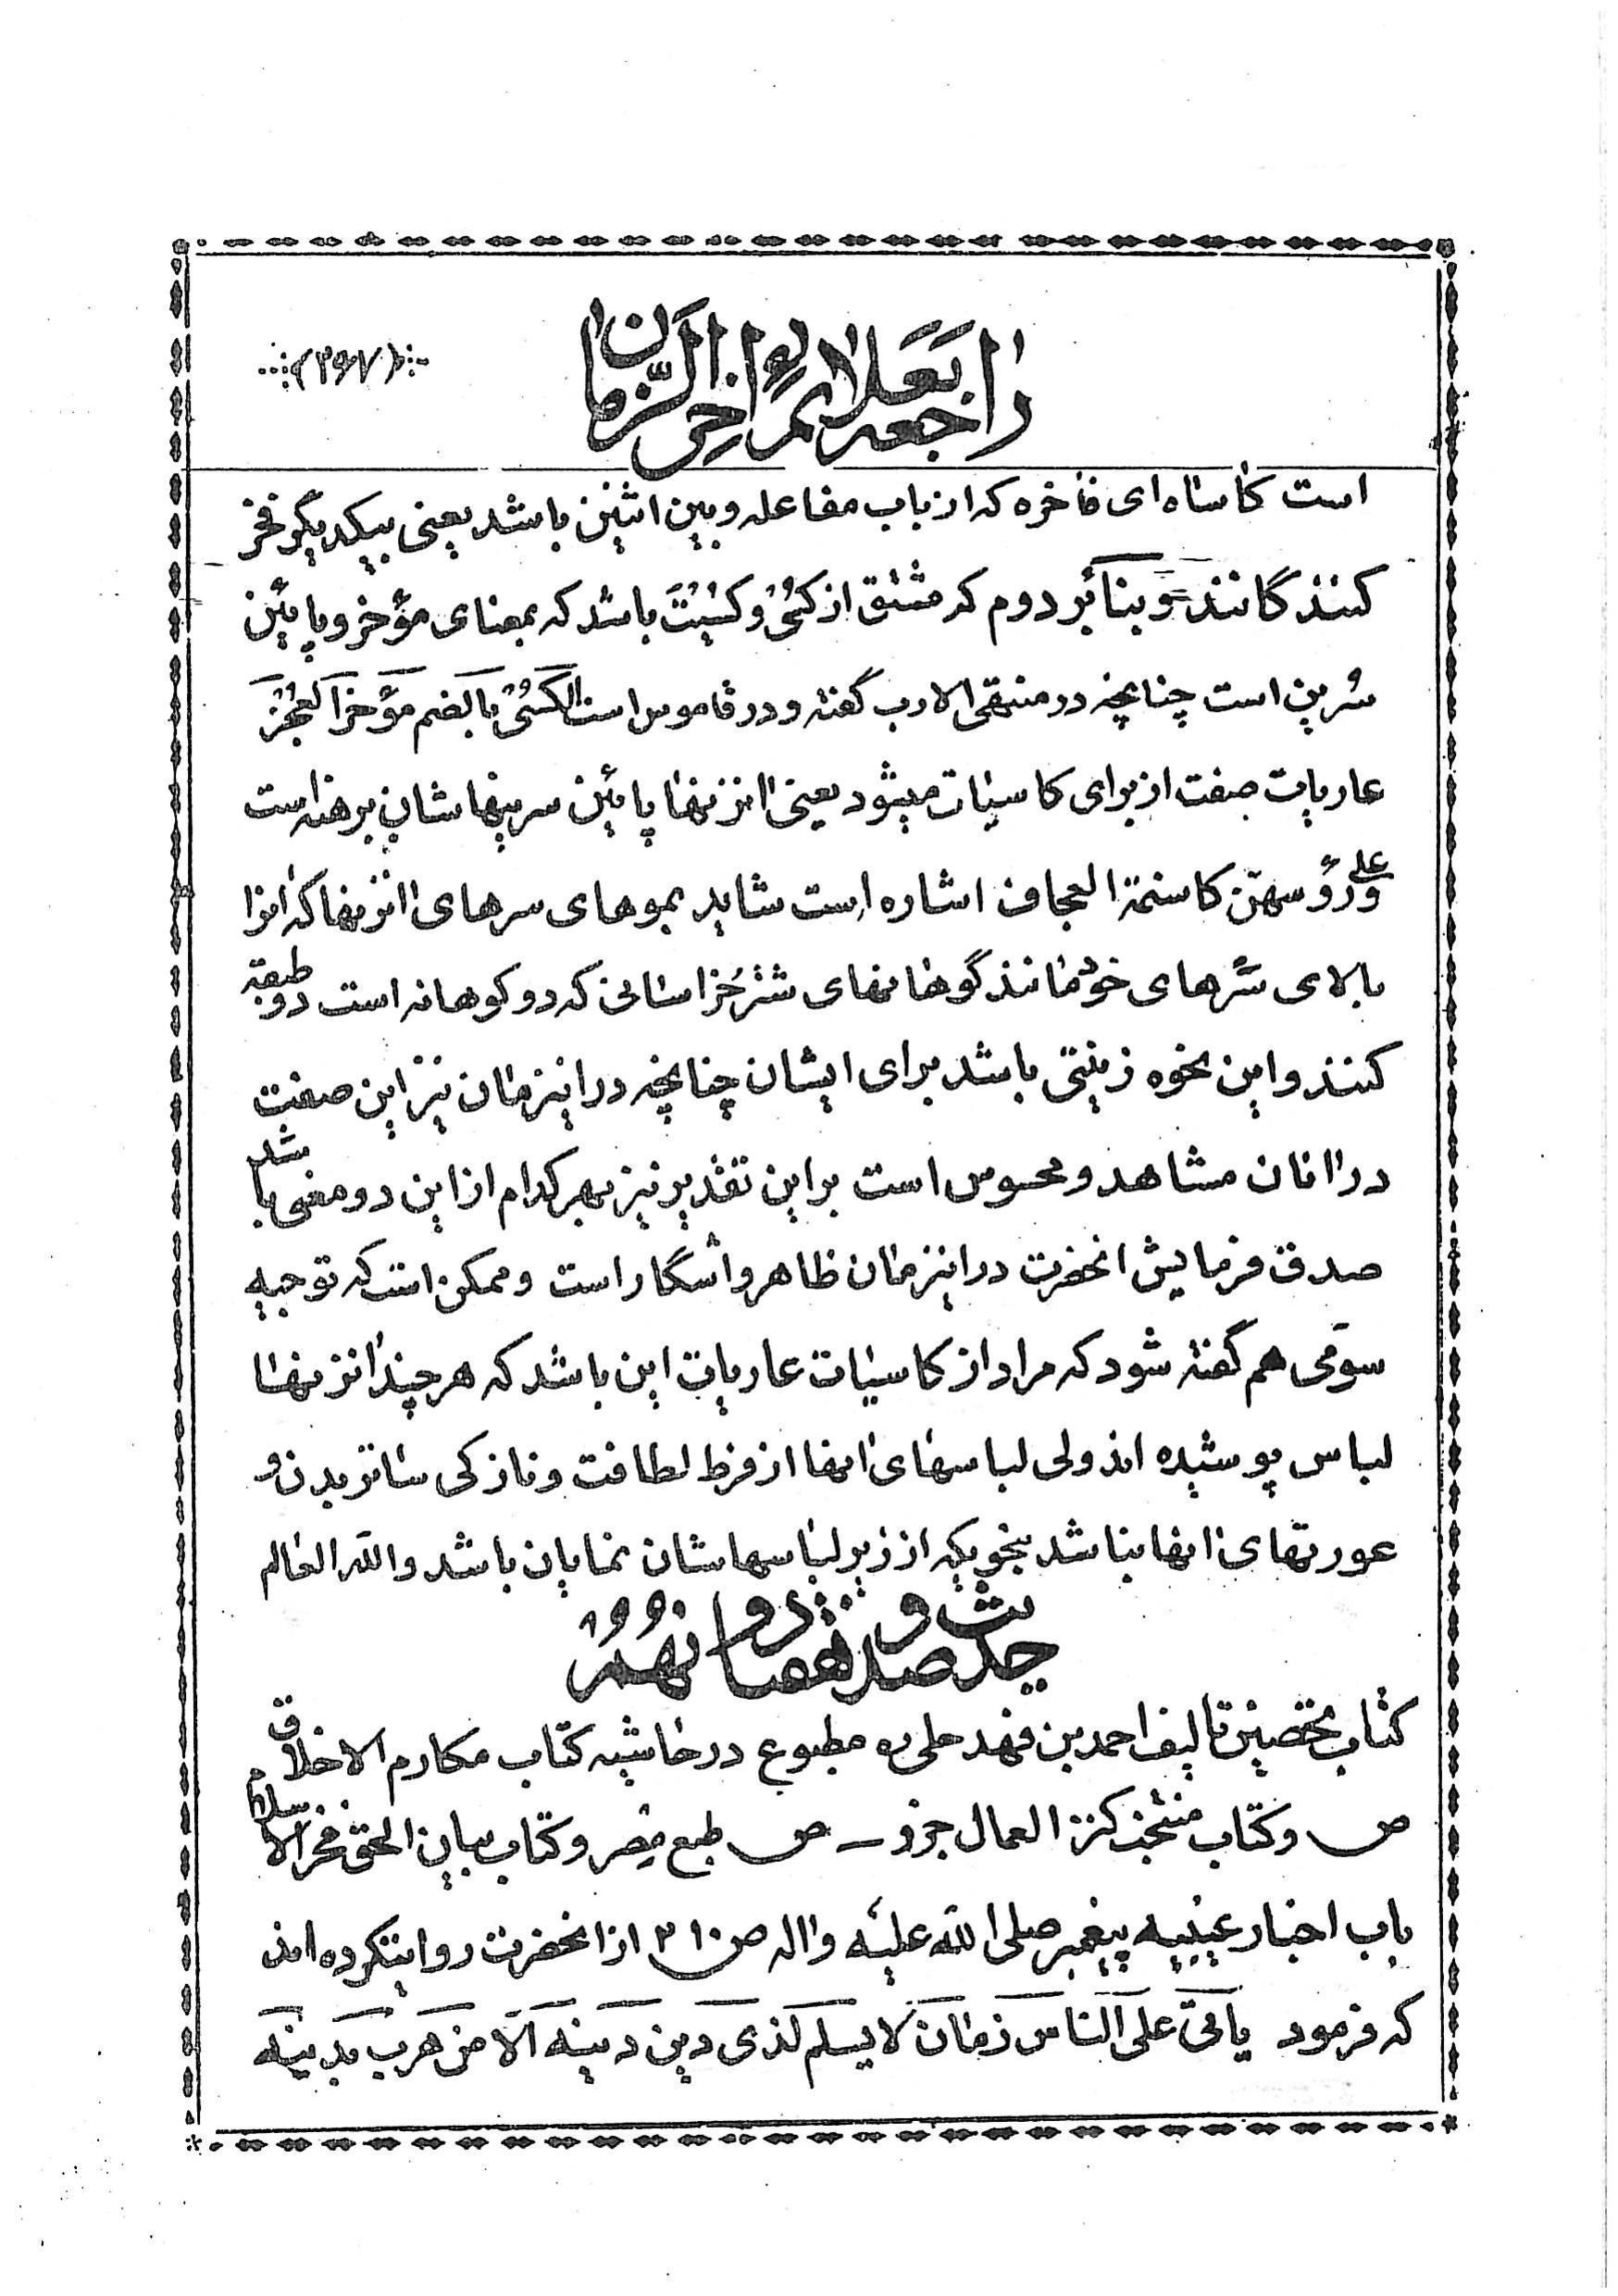 راجعه بعلائم اخر الزمان
(۳۶۷)
است کاساه ای فاخره که از باب مفاعله و بین اثنین باشد یعنی بیکدیگر فخر
کنند گانند و بنا بر دوم که مشتق از کُسْیُ و کسیت باشد که بمعنای مؤخر و پایین
سُرین است چنانچه در منتهی الارب گفته و در قاموس است الکُسْیُ بالضم مؤخر العجُز
عاریات صفت از برای کاسیات میشود یعنی انزنها پایین سرینهاشان برهنه است
و علی رؤسهن کاسنمة العجاف اشاره است شاید بموهای سرهای انزنها که انرا
بالای سَرهای خود مانند گوهانهای شتر خُراسانی که دو کوهانه است دو طبقه
کنند و این نحوه زینتی باشد برای ایشان چنانچه در اینزمان نیز این صفت
در انان مشاهد و محسوس است بر این تقدیر نیز بهر کدام از این دو معنی باشد
صدق فرمایش انحضرت در اینزمان ظاهر و اشگار است و ممکن است که توجیه
سومی هم گفته شود که مراد از کاسیات عاریات این باشد که هر چند انزنها
لباس پوشیده اند ولی لباسهای انها از فرط لطافت و نازکی ساتر بدن و
عورتهای انها نباشد بنحویکه از زیر لباسهاشان نمایان باشد والله العالم
حدیث صد و هفتاد و نهم
کتاب تحصین تالیف احمد بن فهد حلی ره مطبوع در حاشیه کتاب مکارم الاخلاق
ص و کتاب منتخب کنز العمال جزو ــ ص طبع مصر و کتاب بیان الحق فخر الاسلام
باب اخبار غیبیه پیغمبر صلی الله علیه و اله ص ۲۱۰ از انحضرت روایتکرده اند
که فرمود یاتی علی الناس زمان لا یسلم لذی دین دینه الا من هرب بدینه